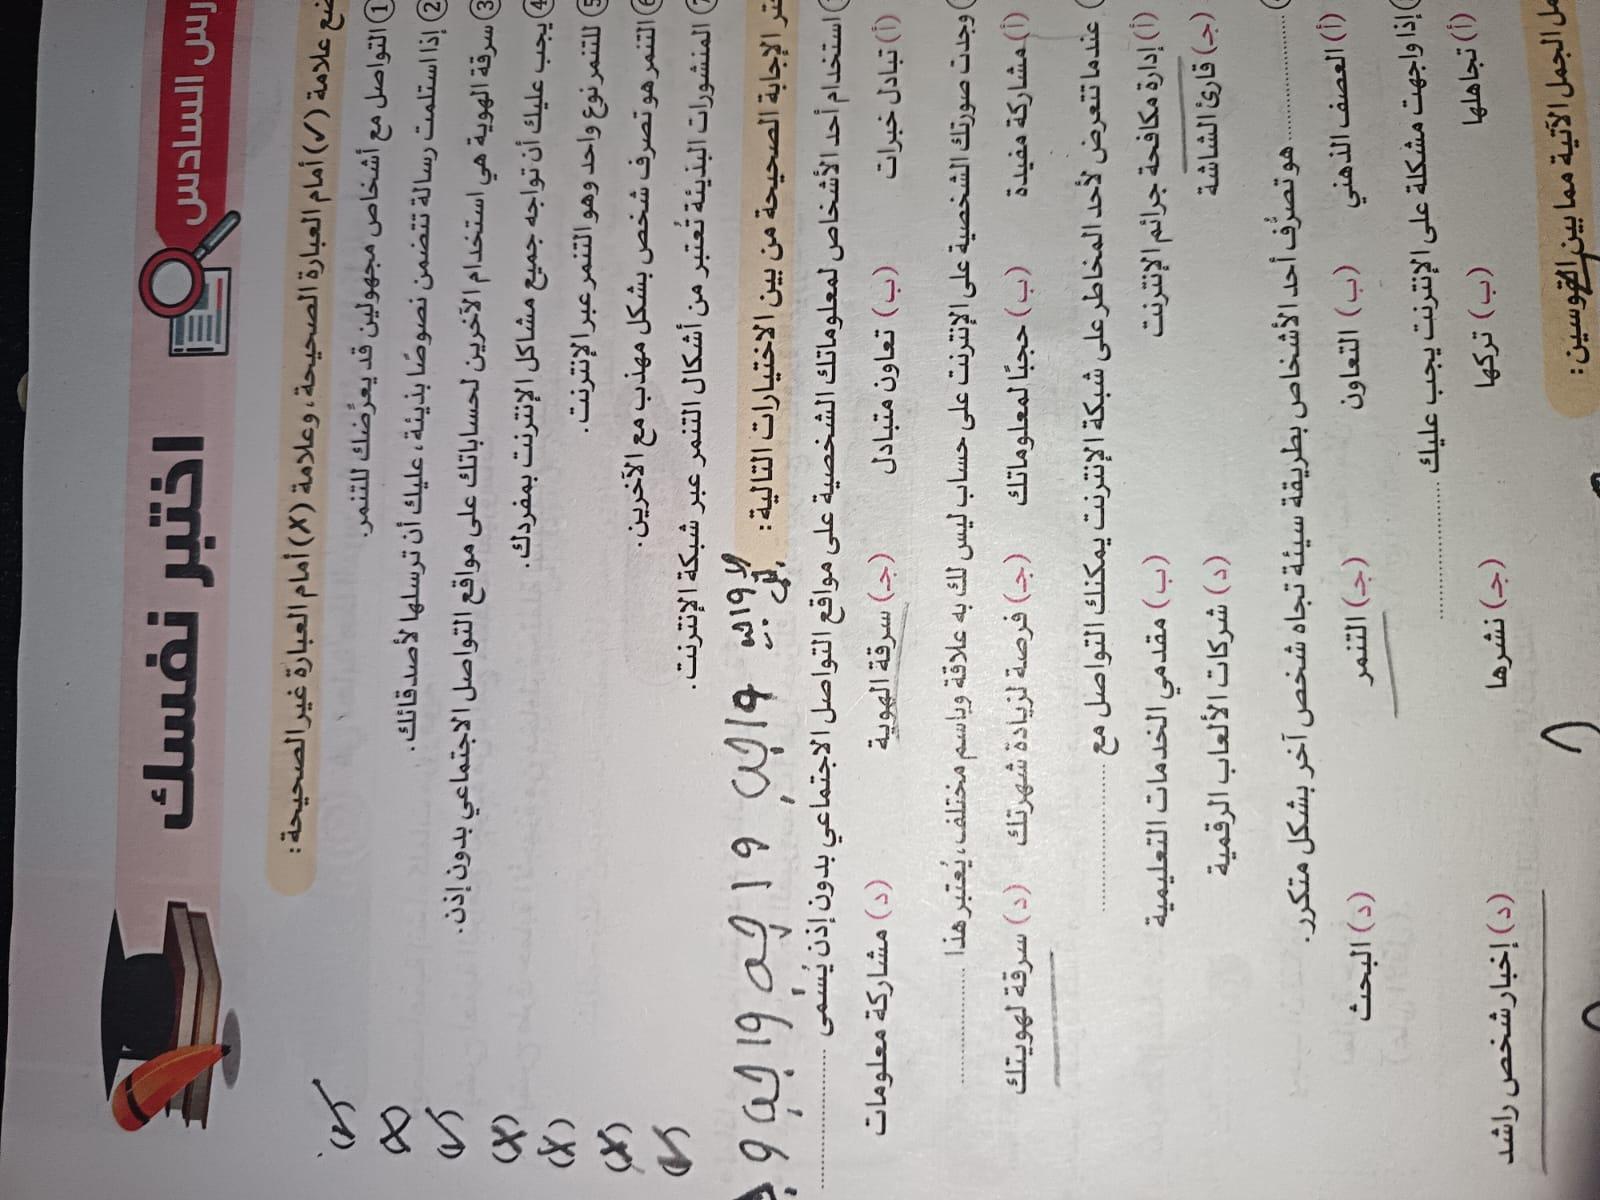 درس السادس
اختبر نفسك
ضع علامة (✓) أمام العبارة الصحيحة، وعلامة (X) أمام العبارة غير الصحيحة:
① التواصل مع أشخاص مجهولين قد يعرِّضك للتنمر. (✓)
② إذا استلمت رسالة تتضمن نصوصًا بذيئة، عليك أن ترسلها لأصدقائك. (X)
③ سرقة الهوية هي استخدام الآخرين لحساباتك على مواقع التواصل الاجتماعي بدون إذن. (✓)
④ يجب عليك أن تواجه جميع مشاكل الإنترنت بمفردك. (X)
⑤ للتنمر نوع واحد وهو التنمر عبر الإنترنت. (X)
⑥ التنمر هو تصرف شخص بشكل مهذب مع الآخرين. (X)
⑦ المنشورات البذيئة تُعتبر من أشكال التنمر عبر شبكة الإنترنت. (✓)
الإجابة الصحيحة من بين الاختيارات التالية:
استخدام أحد الأشخاص لمعلوماتك الشخصية على مواقع التواصل الاجتماعي بدون إذن يُسمى ..............
(أ) تبادل خبرات (ب) تعاون متبادل (جـ) سرقة الهوية (د) مشاركة معلومات
وجدت صورتك الشخصية على الإنترنت على حساب ليس لك به علاقة وباسم مختلف، يُعتبر هذا ..............
(أ) مشاركة مفيدة (ب) حجبًا لمعلوماتك (جـ) فرصة لزيادة شهرتك (د) سرقة لهويتك
عندما تتعرض لأحد المخاطر على شبكة الإنترنت يمكنك التواصل مع ..............
(أ) إدارة مكافحة جرائم الإنترنت (ب) مقدمي الخدمات التعليمية
(جـ) قارئ الشاشة (د) شركات الألعاب الرقمية
.............. هو تصرُّف أحد الأشخاص بطريقة سيئة تجاه شخص آخر بشكل متكرر.
(أ) العصف الذهني (ب) التعاون (جـ) التنمر (د) البحث
إذا واجهت مشكلة على الإنترنت يجب عليك ..............
(أ) تجاهلها (ب) تركها (جـ) نشرها (د) إخبار شخص راشد
الجمل الآتية مما بين القوسين: